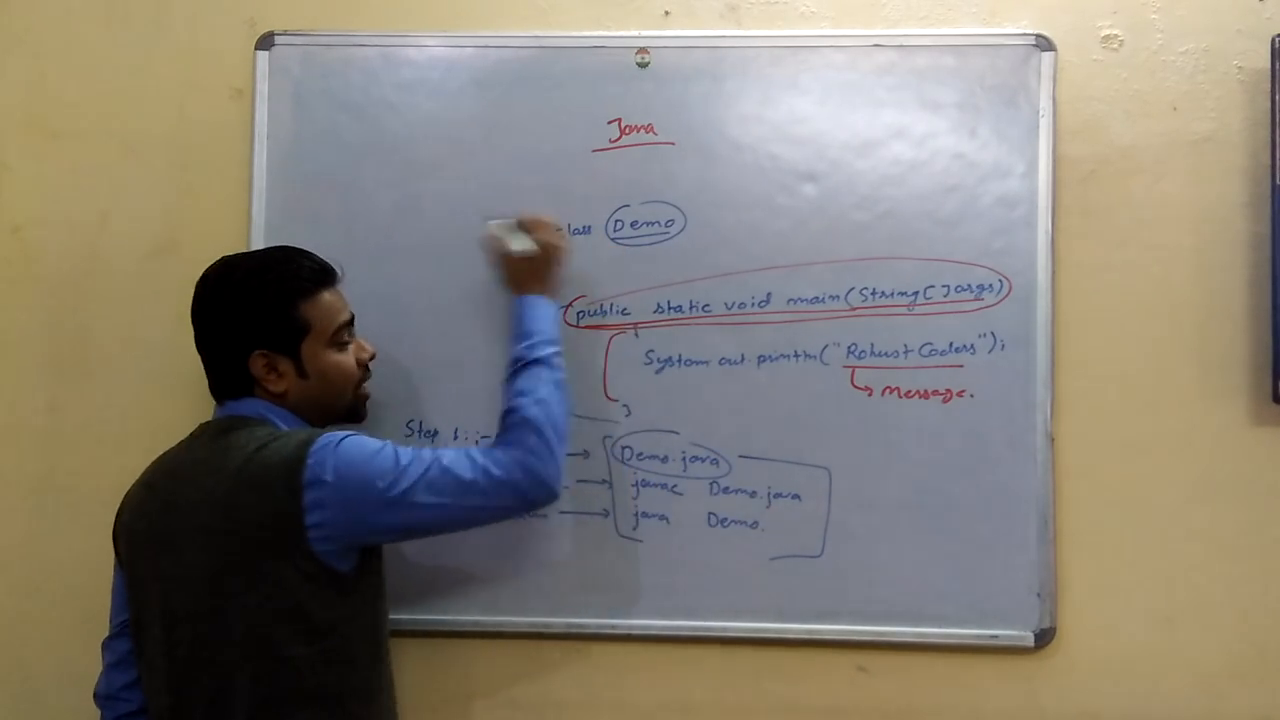 Java
lass Demo
public static void main(String[]args)
{
System.out.println("Robust Coders");
Message.
}
Step 1:-
Demo.java
javac Demo.java
java Demo.